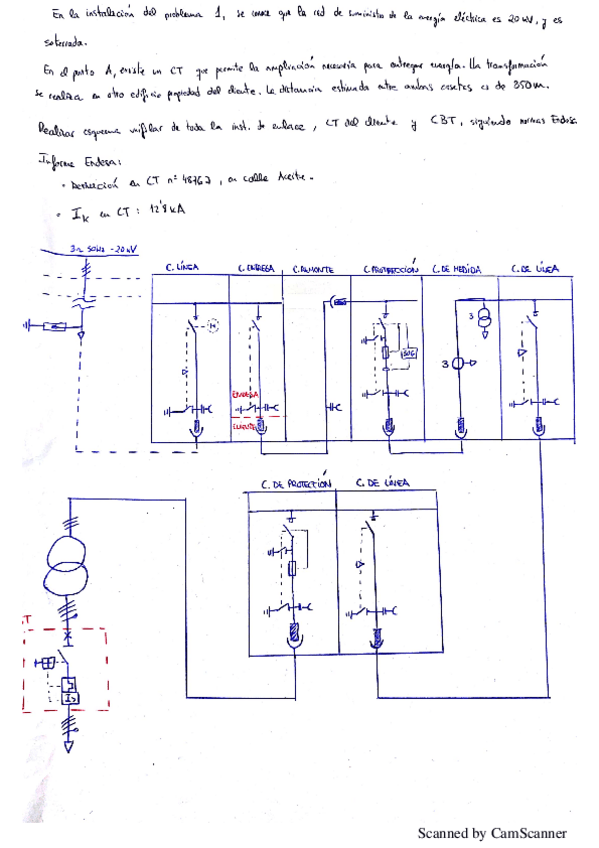 En la instalación del problema 1, se conoce que la red de suministro de la energía eléctrica es 20 kV, y es
soterrada.
En el punto A, existe un CT que permite la ampliación necesaria para entregar energía. La transformación
se realiza en otro edificio propiedad del cliente. La distancia estimada entre ambas casetas es de 350m.
Realizar esquema unifilar de toda la inst. de enlace, CT del cliente y CBT, siguiendo normas Endesa.
Informe Endesa:
• Derivación en CT nº 48762, en calle Aceite.
• Ik en CT: 12'8 kA
3~ 50Hz - 20 kV
C. LÍNEA
C. ENTREGA
C. REMONTE
C. PROTECCIÓN
C. DE MEDIDA
C. DE LÍNEA
M
3
3
ENDESA
CLIENTE
C. DE PROTECCIÓN
C. DE LÍNEA
I>
Scanned by CamScanner